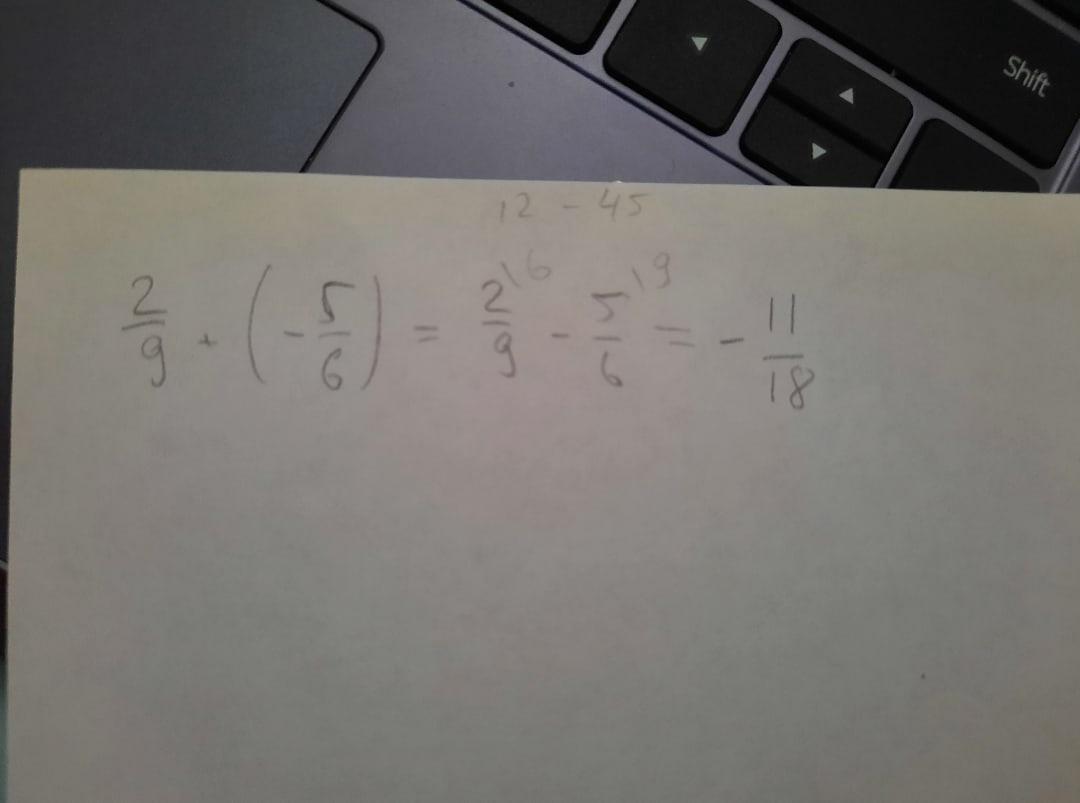 Shift
12 - 45
2/9 + (- 5/6) = 2\6/9 - 5\9/6 = - 11/18